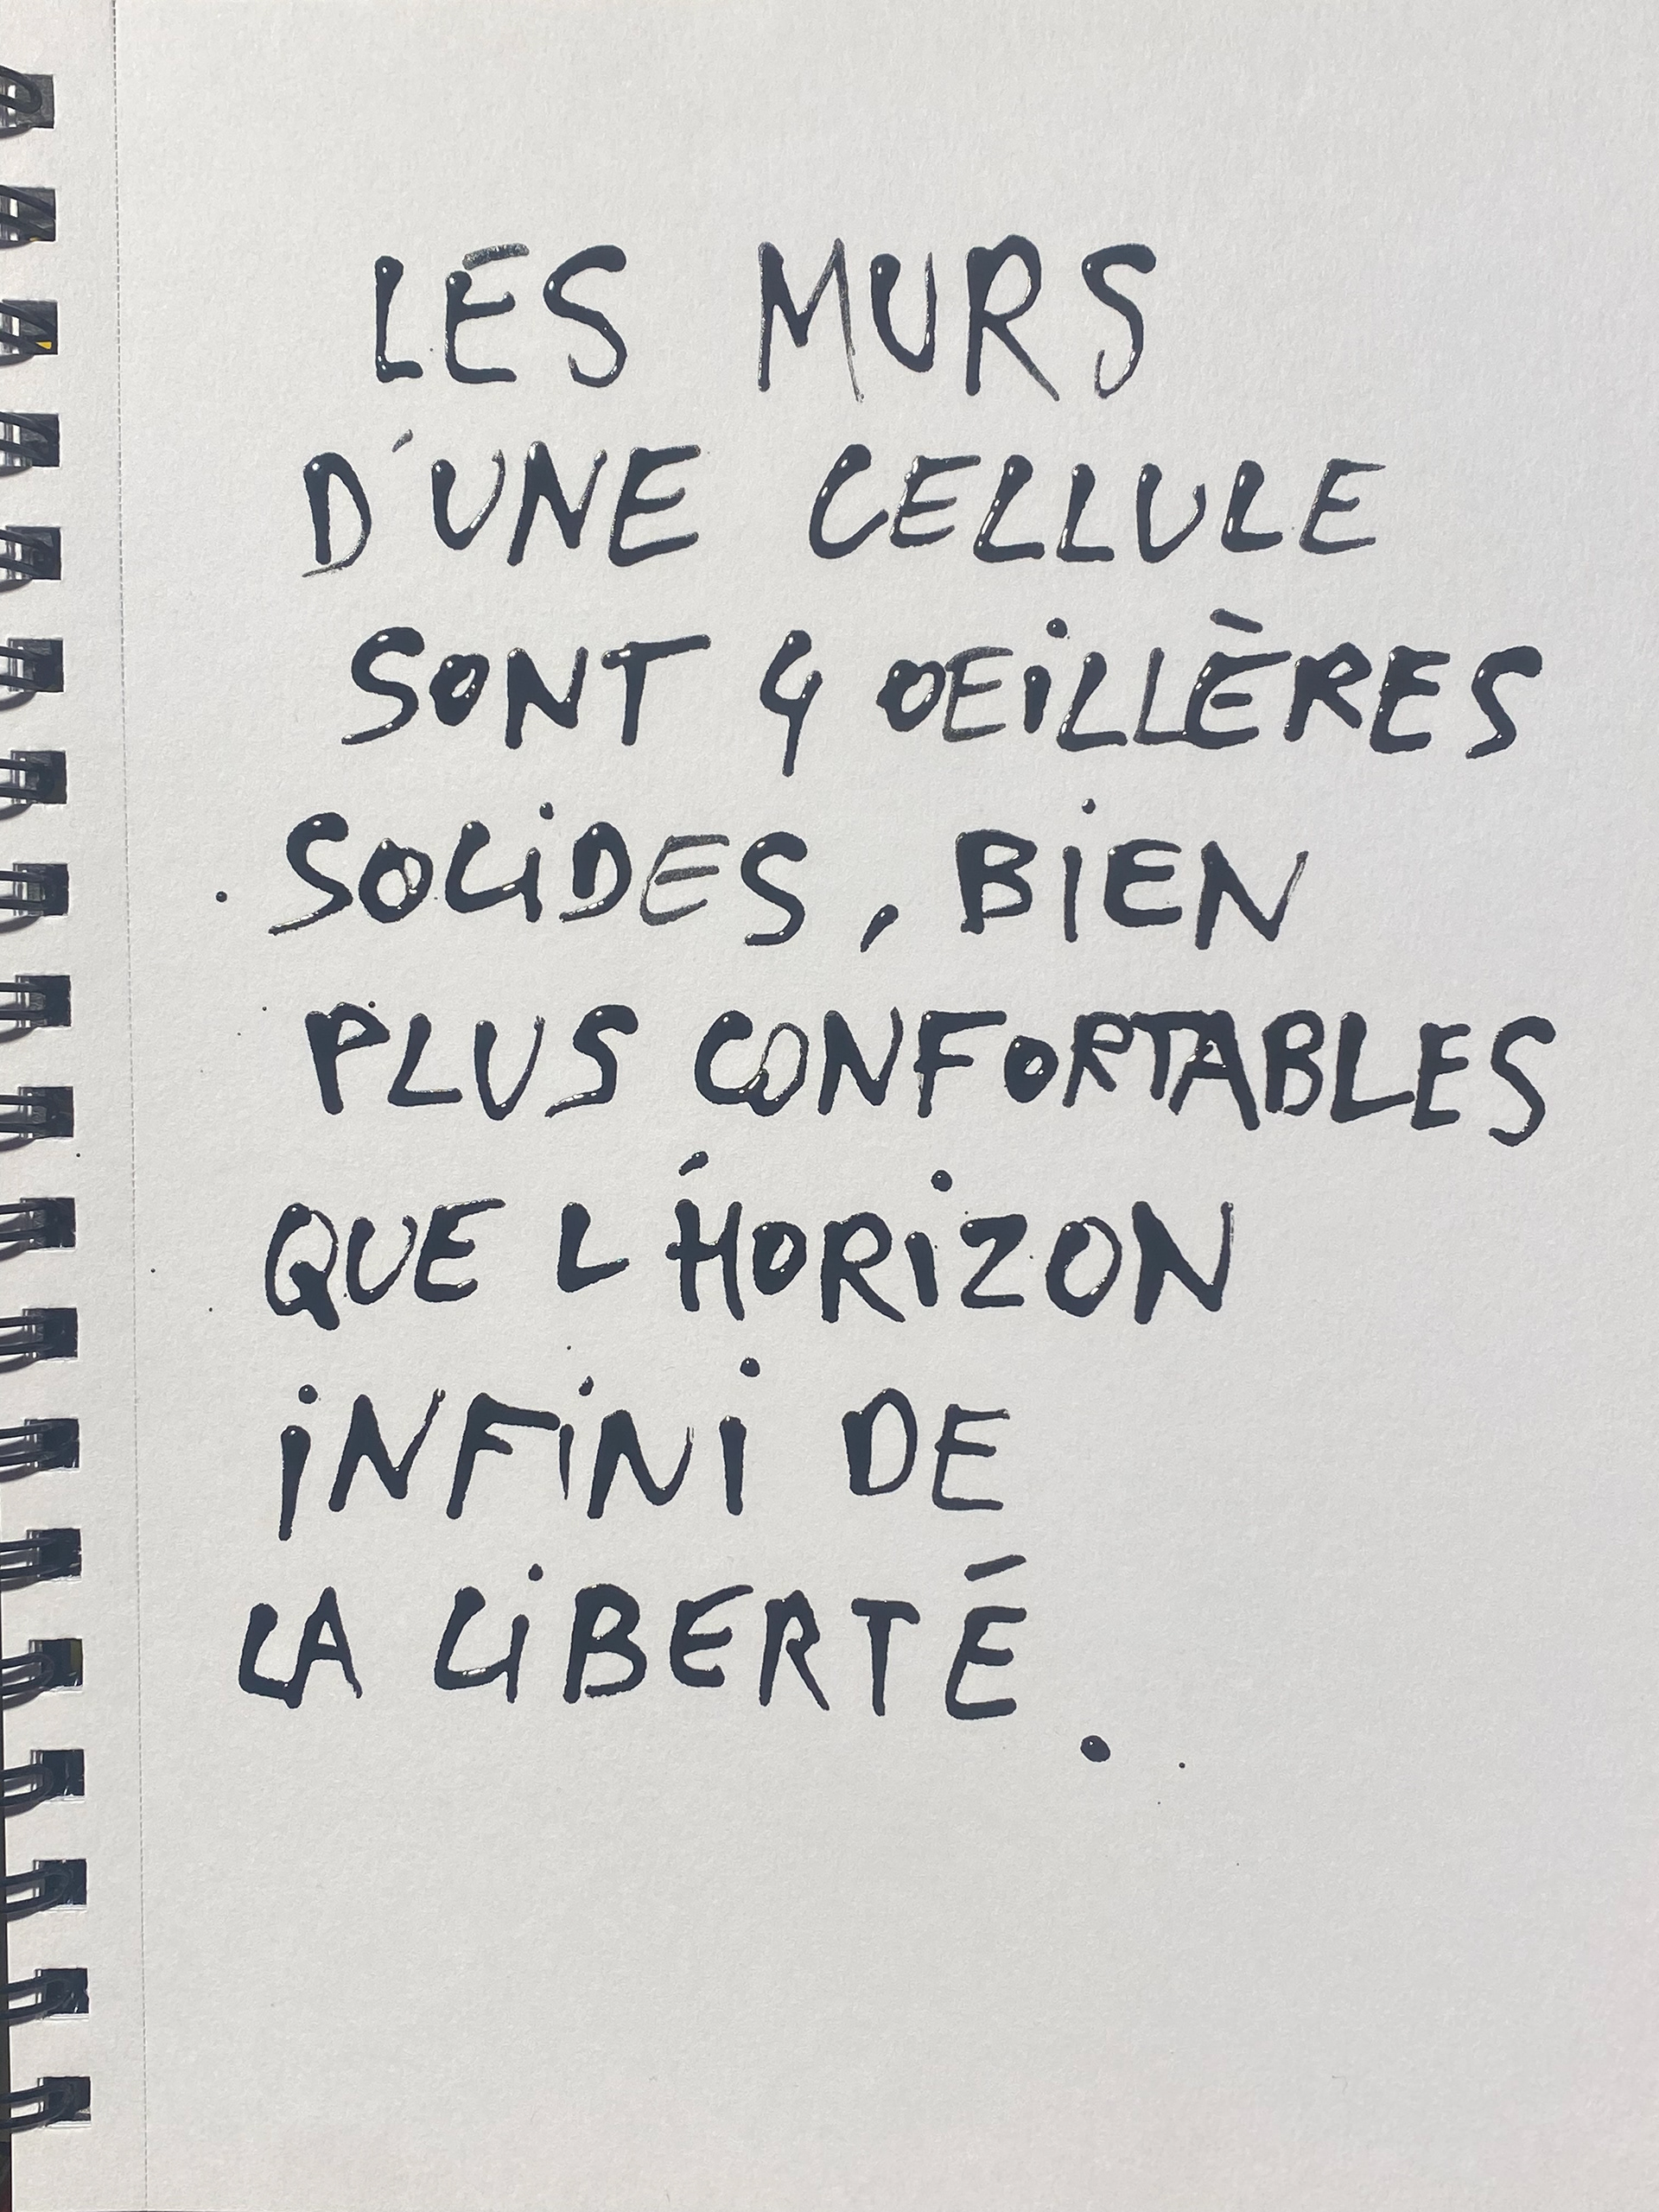 LES MURS
D'UNE CELLULE
SONT 4 OEiLLÈRES
SOLiDES, BiEN
PLUS CONFORTABLES
QUE L'HORiZON
iNFiNi DE
LA LiBERTÉ.